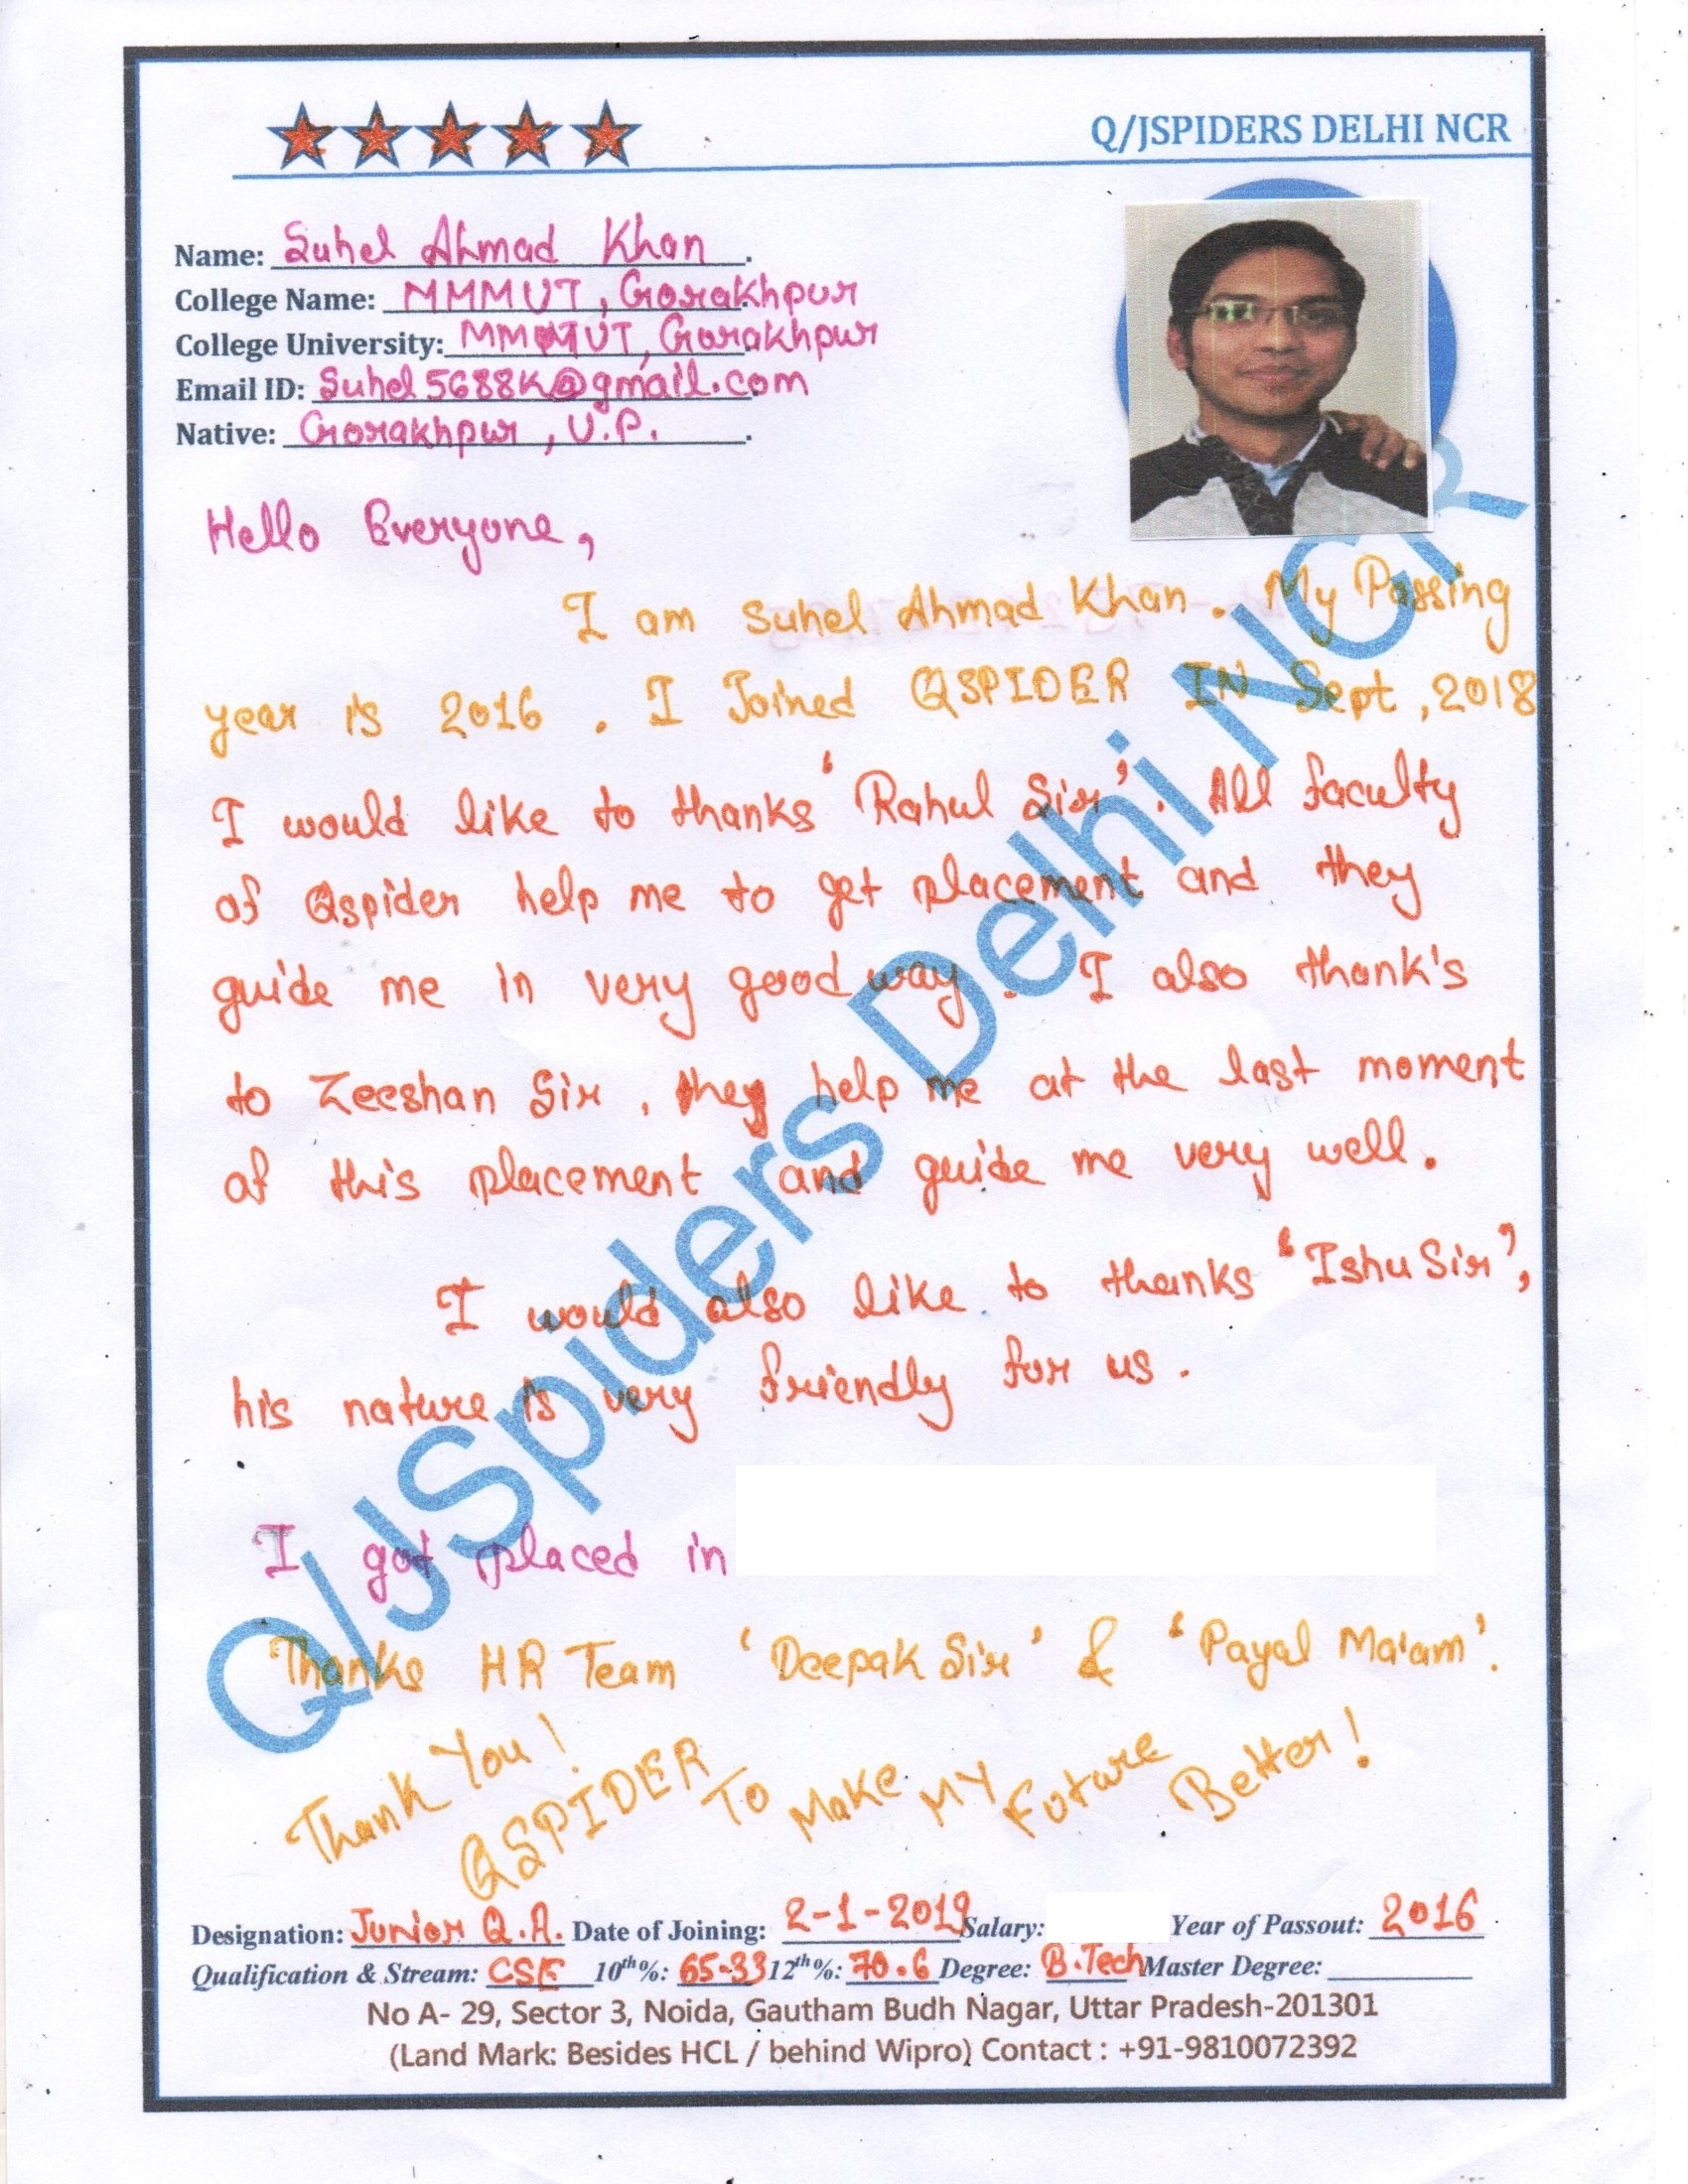 Q/JSPIDERS DELHI NCR
Name: Suhel Ahmad Khan.
College Name: MMMUT, Gorakhpur
College University: MMMUT, Gorakhpur
Email ID: Suhel5688K@gmail.com
Native: Gorakhpur, U.P.
Hello Everyone,
I am Suhel Ahmad Khan. My Passing
year is 2016. I Joined QSPIDER IN Sept, 2018
I would like to thanks 'Rahul Sir'. All faculty
of Qspider help me to get placement and they
guide me in very good way. I also thank's
to Zeeshan Sir, they help me at the last moment
of this placement and guide me very well.
I would also like to thanks 'Ishu Sir',
his nature is very friendly for us.
I got placed in
Thanks HR Team 'Deepak Sir' & 'Payal Ma'am'.
Thank You!
QSPIDER To Make MY Future Better!
Designation: Junior Q.A. Date of Joining: 2-1-2019 Salary: Year of Passout: 2016
Qualification & Stream: CSE 10th%: 65.33 12th%: 70.6 Degree: B.Tech Master Degree:
No A- 29, Sector 3, Noida, Gautham Budh Nagar, Uttar Pradesh-201301
(Land Mark: Besides HCL / behind Wipro) Contact : +91-9810072392
Q/JSpiders Delhi NCR